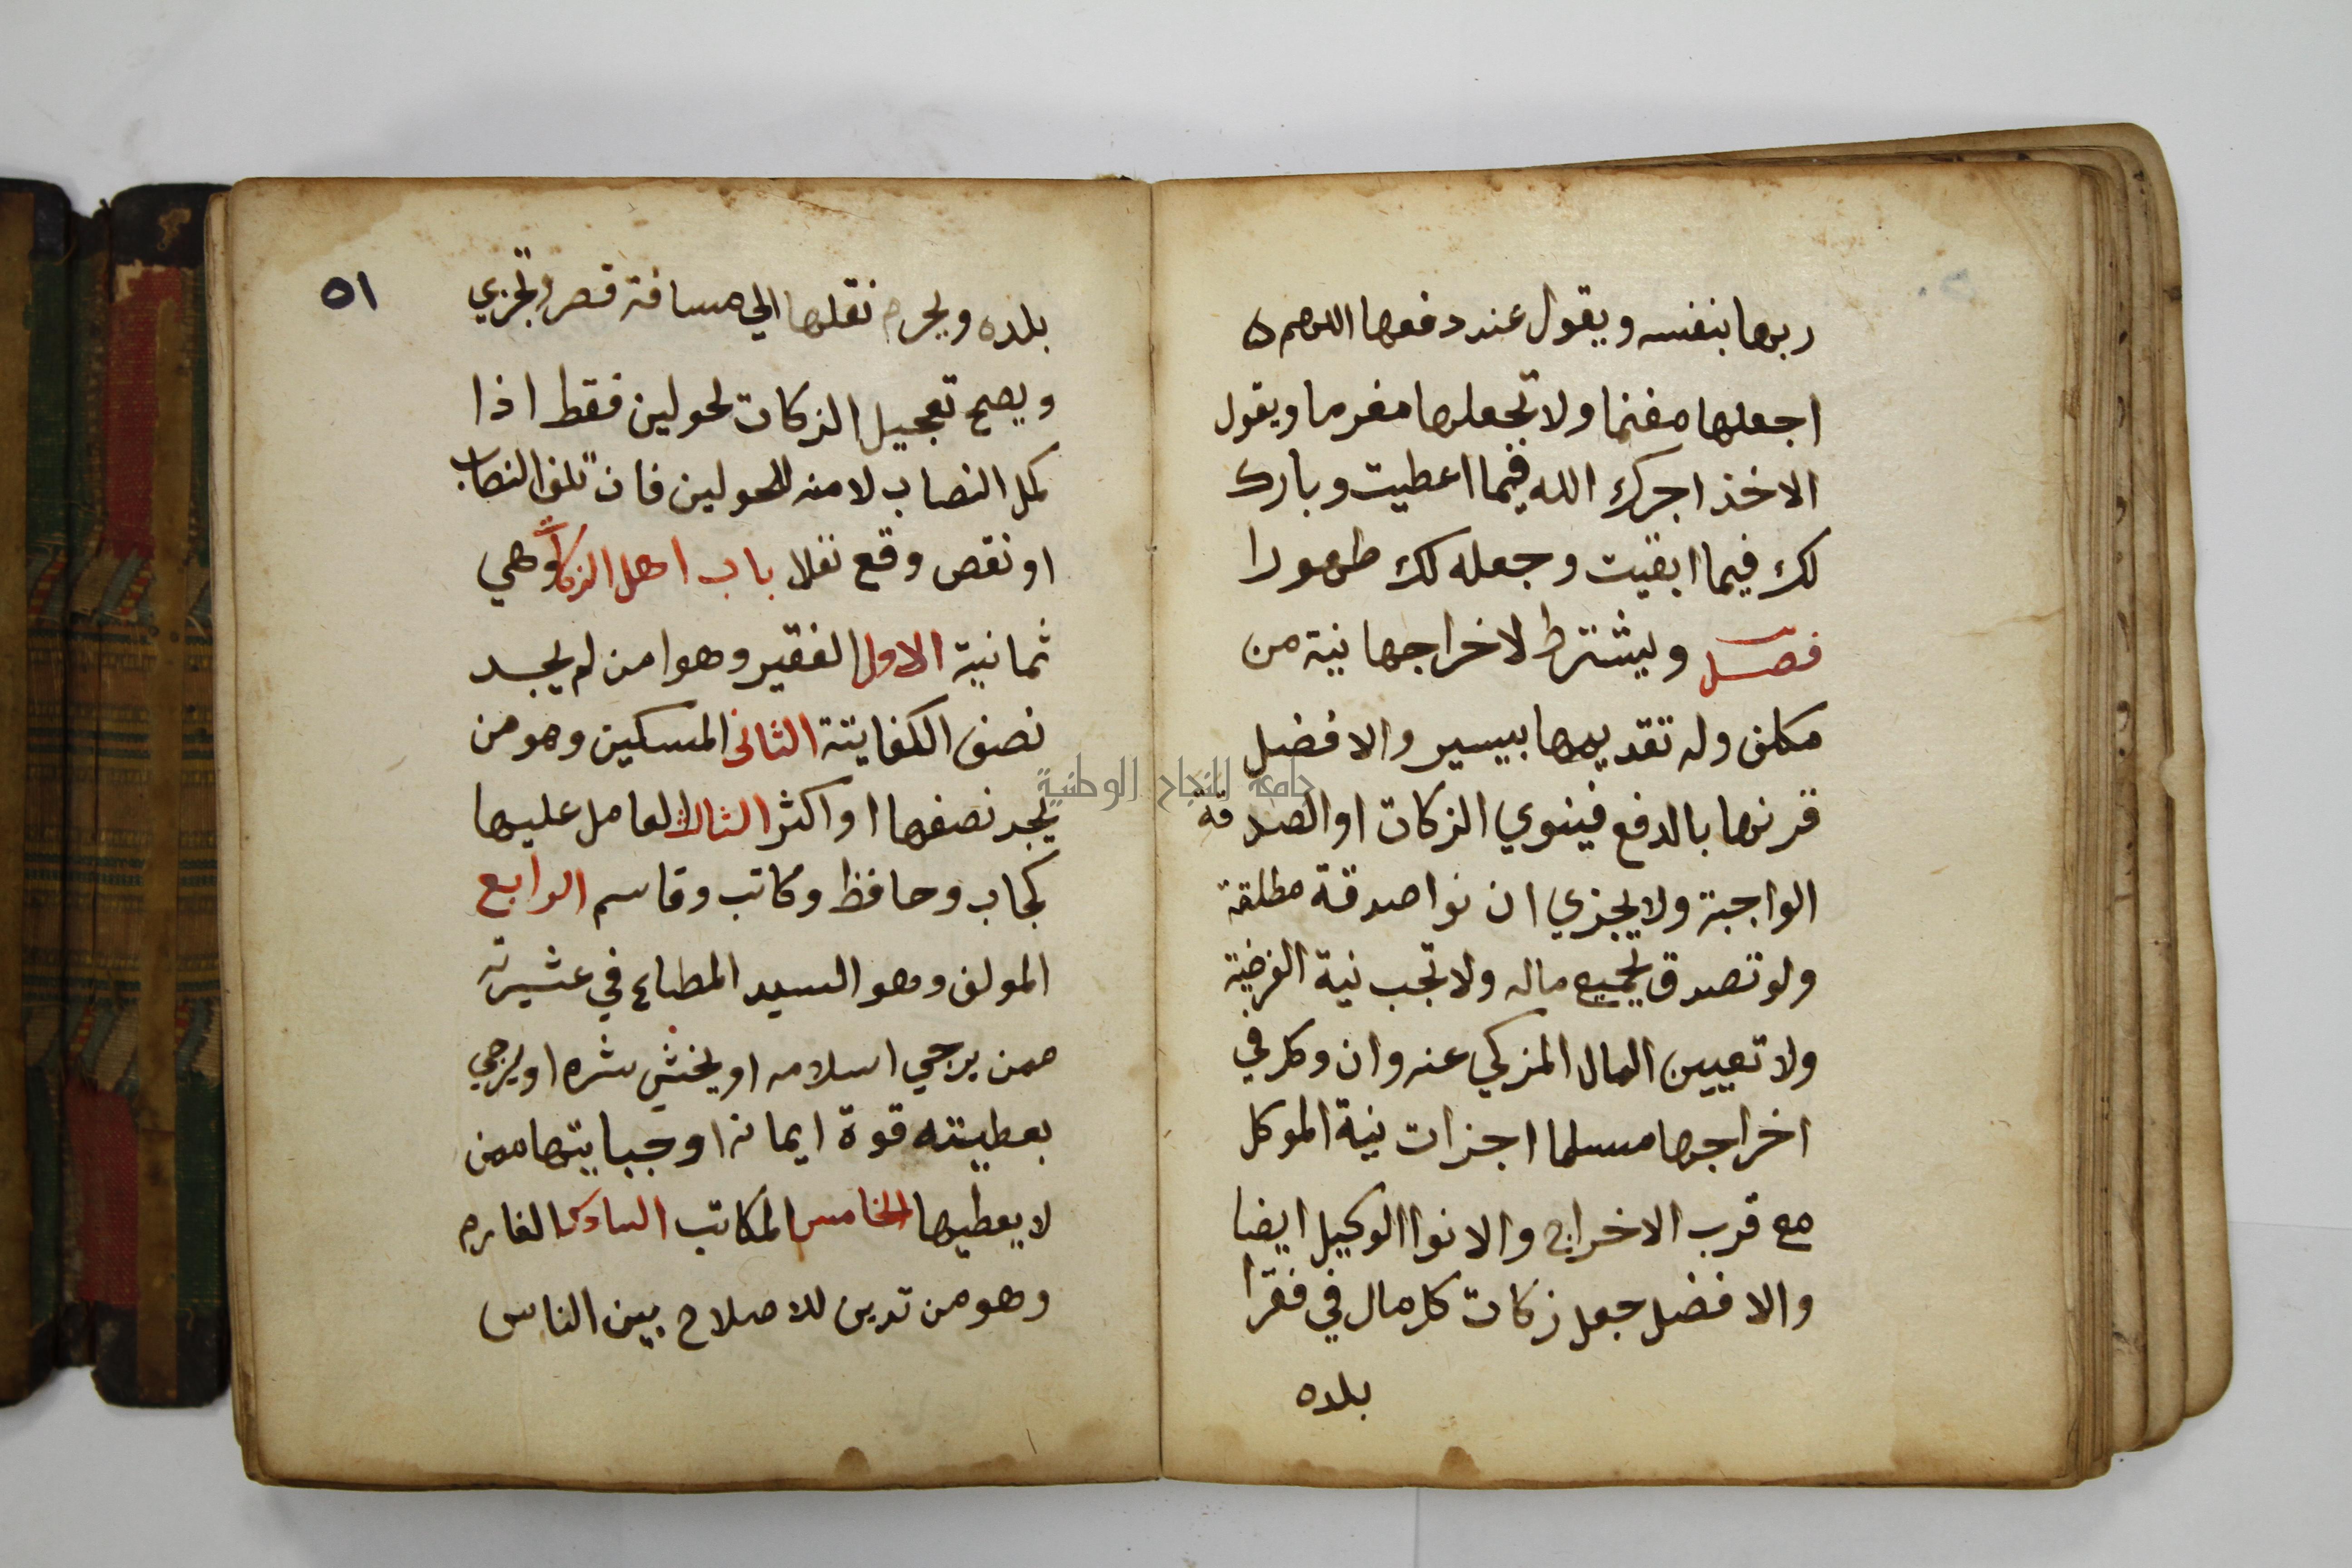 ربها بنفسه ويقول عند دفعها اللهم
اجعلها مغنما ولا تجعلها مغرما ويقول
الاخذ اجرك الله فيما اعطيت وبارك
لك فيما ابقيت وجعله لك طهورا
فصل ويشترط لاخراجها نية من
مكلف وله تقديمها بيسير والافضل
قرنها بالدفع فينوي الزكات او الصدقة
الواجبة ولا يجزي ان نوا صدقة مطلقة
ولو تصدق بجميع ماله ولا تجب نية الفرضية
ولا تعيين المال المزكي عنه وان وكل في
اخراجها مسلما اجزات نية الموكل
مع قرب الاخراج والا نوا الوكيل ايضا
والافضل جعل زكات كل مال في فقرا
بلده
٥١
بلده ويحرم نقلها الي مسافة قصر وتجزي
ويصح تعجيل الزكات لحولين فقط اذا
كمل النصاب لا منه للحولين فان تلف النصاب
او نقص وقع نفلا باب اهل الزكات وهي
ثمانية الاول الفقير وهوا من لم يجد
نصف الكفايتة الثاني المسكين وهو من
يجد نصفها او اكثر الثالث العامل عليها
كجاب وحافظ وكاتب وقاسم الرابع
المولف وهو السيد المطاع في عشيرته
ممن يرجي اسلامه او يخشي شره او يرجي
بعطيته قوة ايمانه او جبايتها ممن
لا يعطيها الخامس المكاتب السادس الغارم
وهو من تدين للاصلاح بين الناس
جامعة النجاح الوطنية